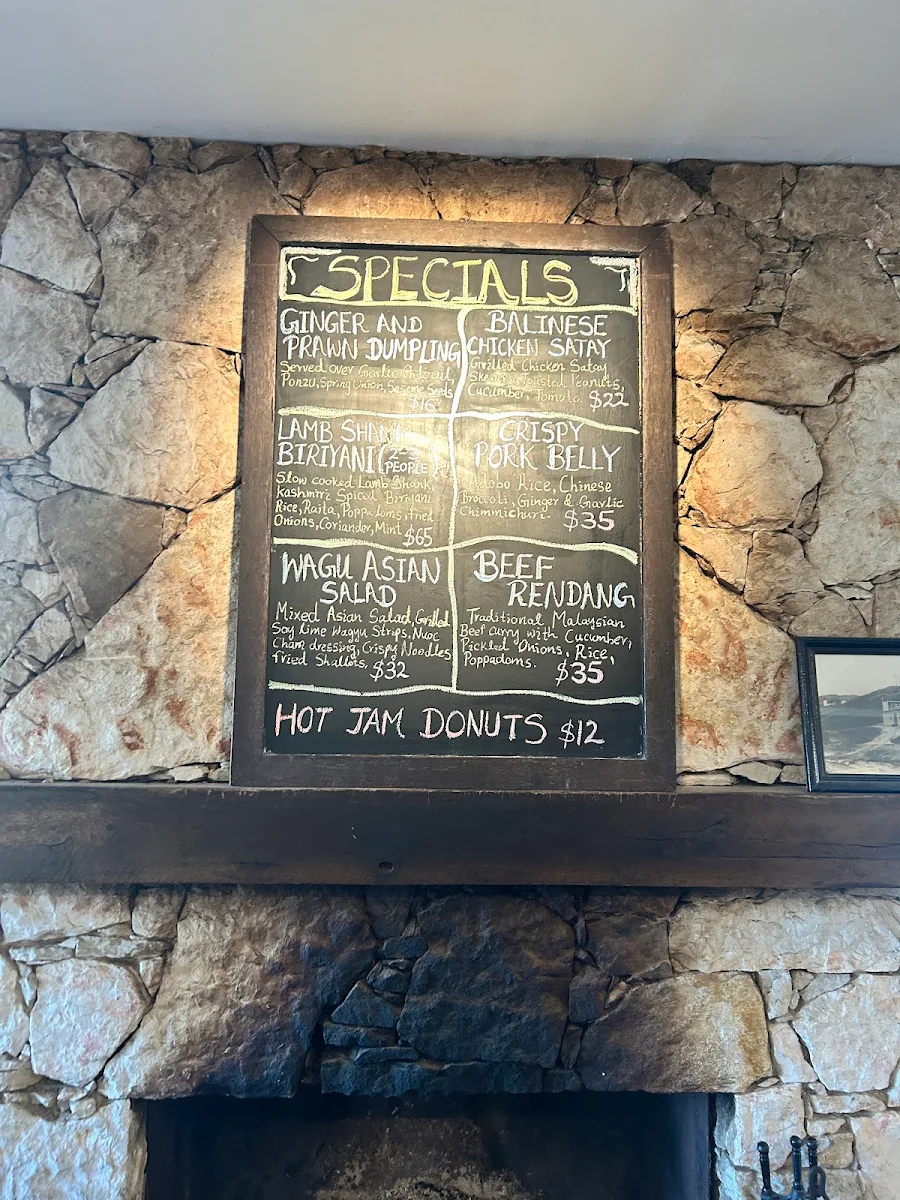 SPECIALS
GINGER AND
PRAWN DUMPLING
Served over Garlic Chilli oil,
Ponzu, Spring Onion, Sesame Seeds
$16
BALINESE
CHICKEN SATAY
Grilled Chicken Satay
Roasted Peanuts,
Cucumber, Tomato. $22
LAMB SHANK
BIRIYANI (2-3
PEOPLE)
Slow cooked Lamb Shank,
Kashmiri Spiced Biriyani
Rice, Raita, Poppadoms, Fried
Onions, Coriander, Mint $65
CRISPY
PORK BELLY
Adobo Rice, Chinese
Broccoli, Ginger & Garlic
Chimmichuri. $35
WAGU ASIAN
SALAD
Mixed Asian Salad, Grilled
Soy Lime Wagyu Strips, Nuoc
Cham dressing, Crispy Noodles
Fried Shallots, $32
BEEF
RENDANG
Traditional Malaysian
Beef Curry with Cucumber,
Pickled Onions, Rice,
Poppadoms. $35
HOT JAM DONUTS $12